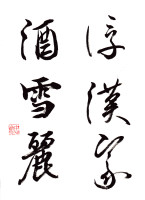 淳漢家
酒雪麗